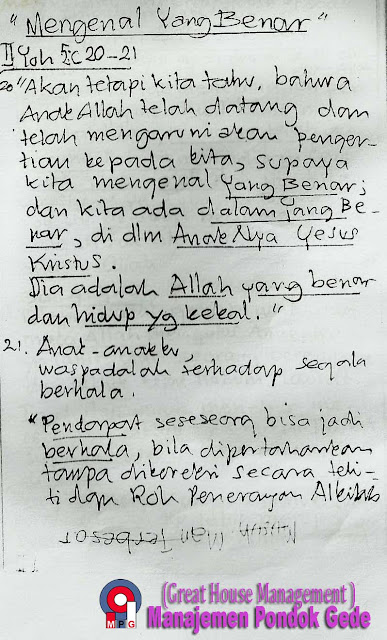 "Mengenal Yang Benar"
II Yoh 5:C 20-21
20 "Akan tetapi kita tahu, bahwa
Anak Allah telah datang dan
telah mengaruniakan penger-
tian kepada kita, supaya
kita mengenal Yang Benar;
dan kita ada dalam Yang Be-
nar, di dlm Anak Nya Yesus
Kristus.
Dia adalah Allah yang benar
dan hidup yg kekal."
21. Anak-anakku,
waspadalah terhadap segala
berhala.
"Pendapat seseseorg bisa jadi
berhala, bila dipertahankan
tanpa dikoreksi secara teli-
ti dgn Roh Penerangan Alkitab
Terbesar
(Great House Management)
MPG
Manajemen Pondok Gede